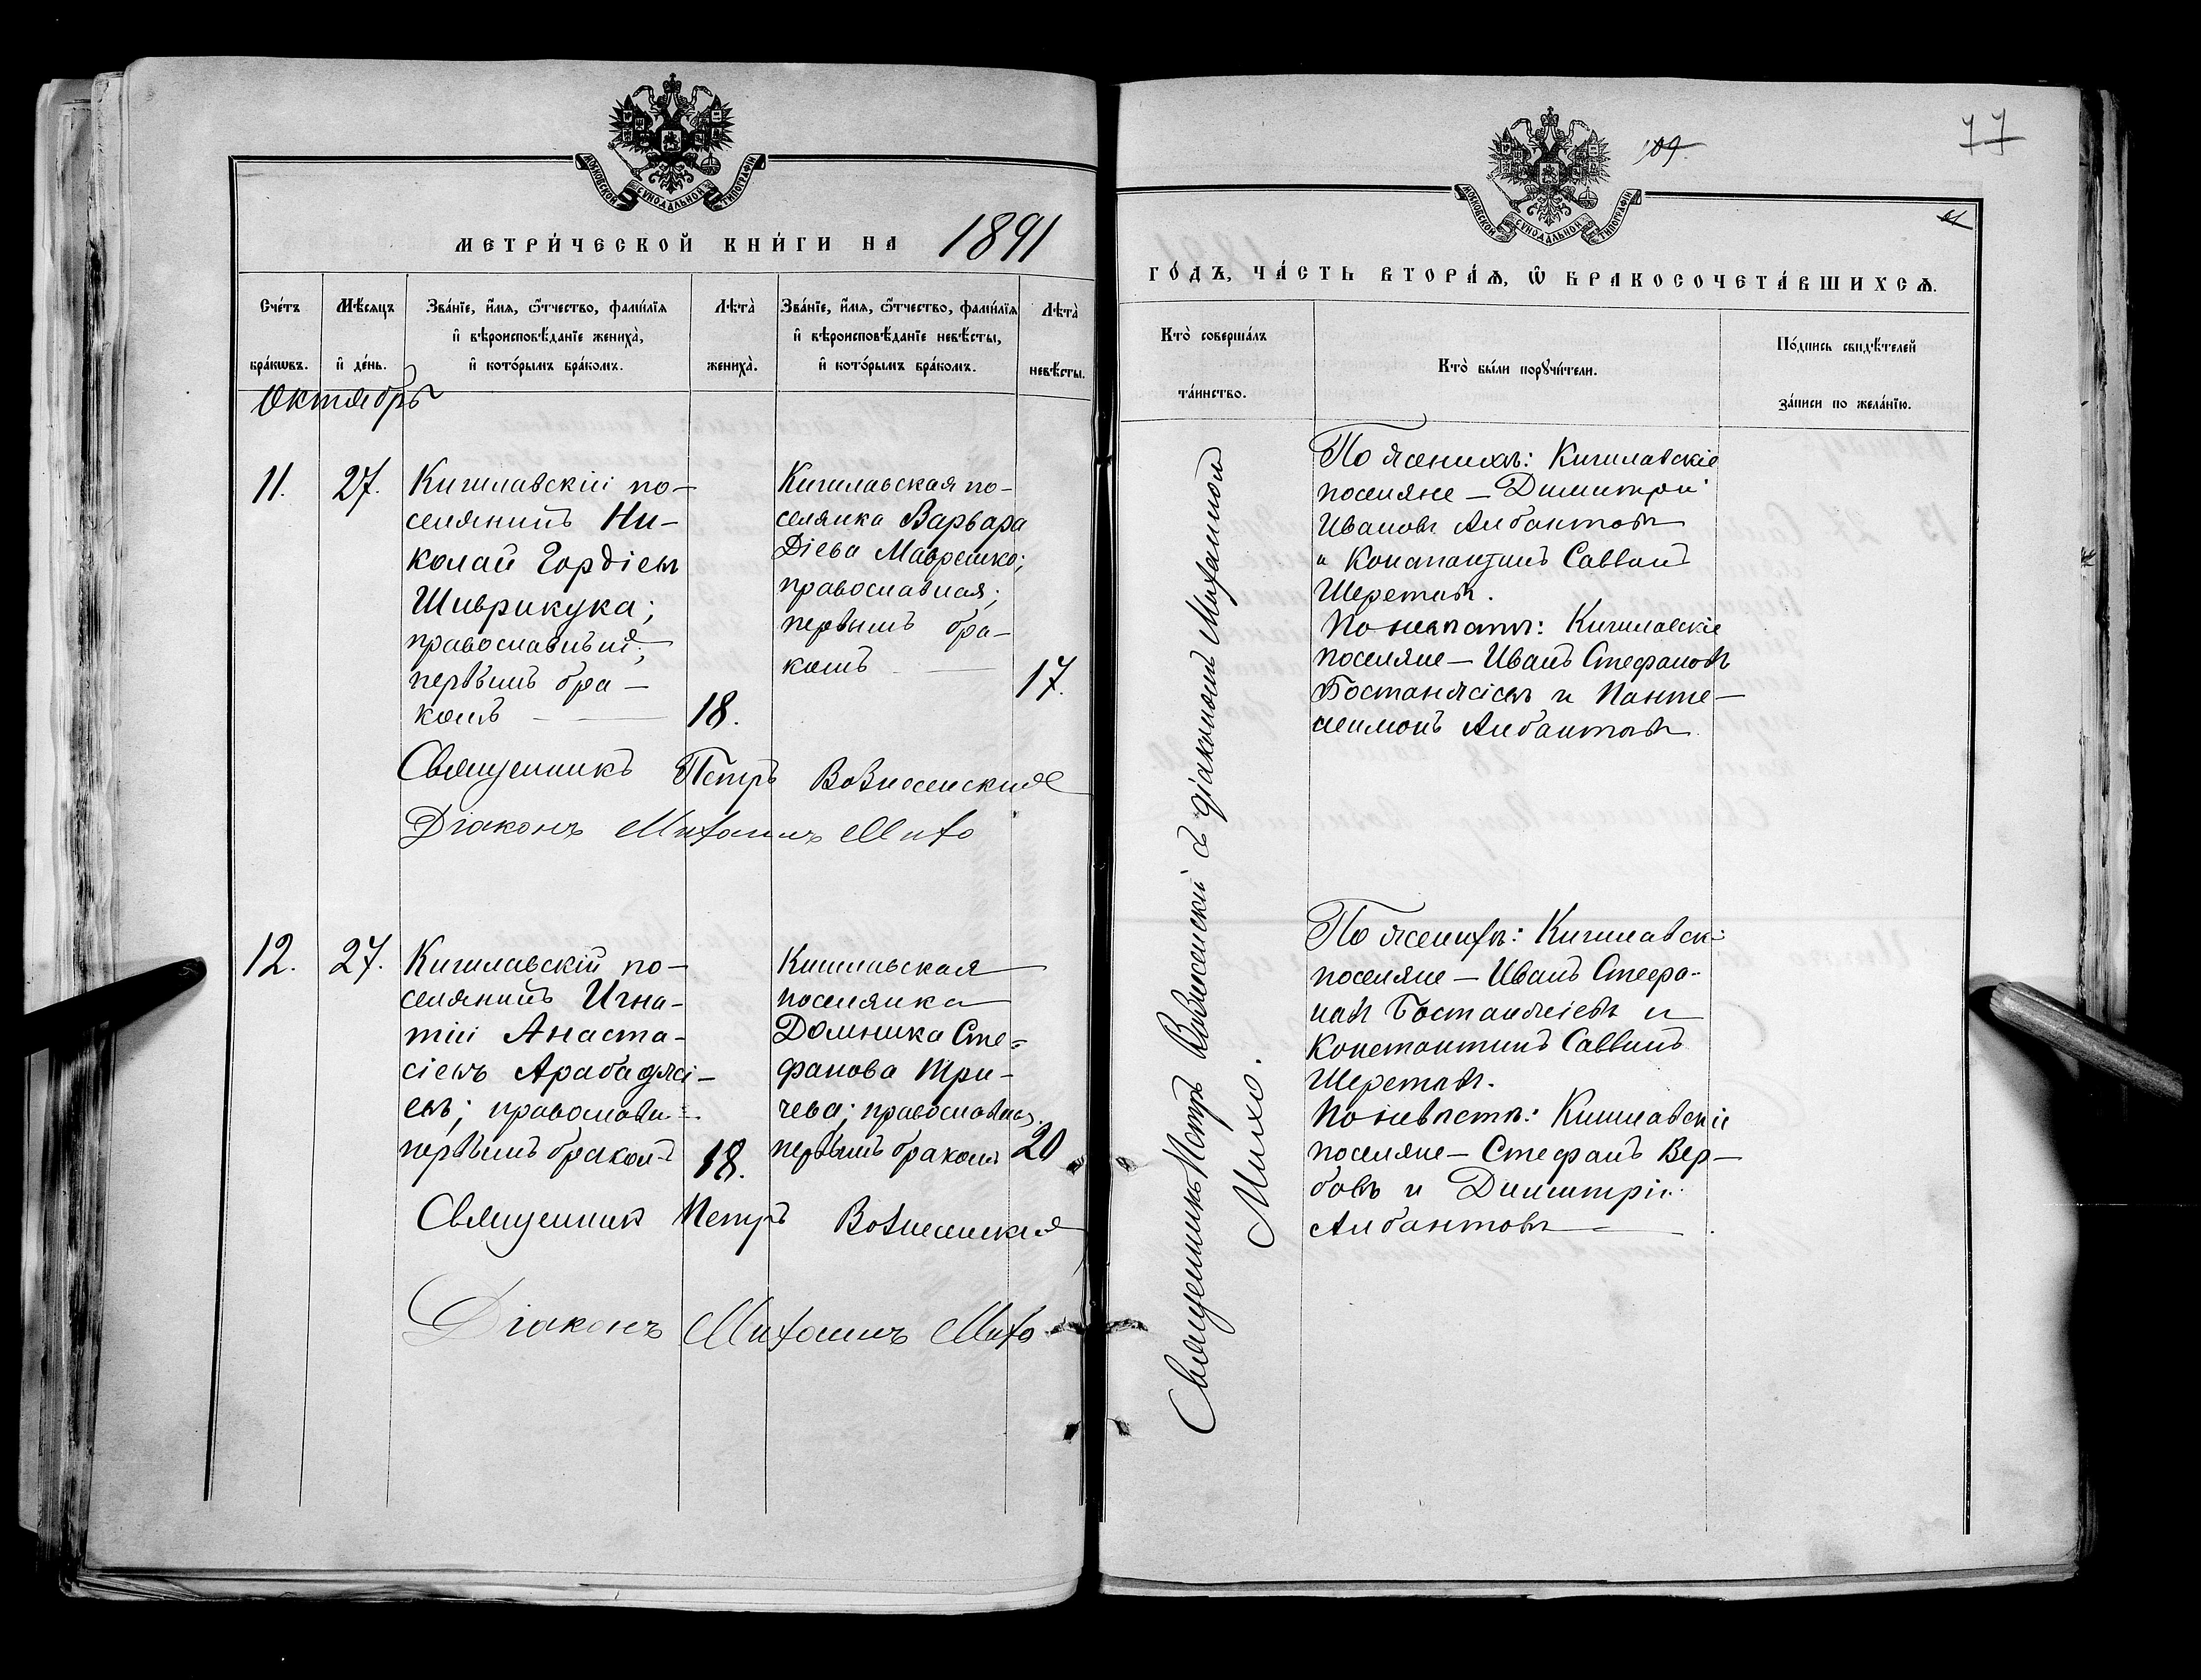 МОСКОВСКОЙ СѴНОДАЛЬНОЙ ТИПОГРАФІИ
МЕТРИ́ЧЕСКОЙ КНИ́ГИ НА 1891
Сче́тъ бра́кѡвъ.
Мѣ́сяцъ и҆ де́нь.
Зва́нїе, и҆́мя, ѻ҆́тчество, фами́лїя и҆ вѣроисповѣ́данїе жениха̀, и҆ кото́рымъ бра́комъ.
Лѣта̀ жениха̀.
Зва́нїе, и҆́мя, ѻ҆́тчество, фами́лїя и҆ вѣроисповѣ́данїе невѣ́сты, и҆ кото́рымъ бра́комъ.
Лѣта̀ невѣ́сты.
Октябрь
11.
27.
Кигилавскій по-
селянинъ Ни-
колай Гордіевъ
Шиврикука;
православный;
первымъ бра-
комъ
18.
Кигилавская по-
селянка Варвара
Діева Маврешко;
православная;
первымъ бра-
комъ
17.
Священникъ Петръ Вознесенскій
Діаконъ Михаилъ Михо
12.
27.
Кигилавскій по-
селянинъ Игна-
тій Анаста-
сіевъ Арабаджі-
евъ; православн.
первымъ бракомъ
18.
Кигилавская
поселянка
Домника Сте-
фанова Три-
чева; православная;
первымъ бракомъ
20
Священникъ Петръ Вознесенскій
Діаконъ Михаилъ Михо
109.
77
МОСКОВСКОЙ СѴНОДАЛЬНОЙ ТИПОГРАФІИ
ГО́ДЪ, ЧА́СТЬ ВТОРА́Ѧ, Ѡ҆ БРАКОСОЧЕТА́ВШИХСѦ.
Кто̀ соверша́лъ та́инство.
Кто̀ бы́ли порꙋчи́тели.
По́дпись свидѣ́телей за́писи по жела́нїю.
Священникъ Петръ Вознесенскій съ діакономъ Михаиломъ
Михо.
По женихѣ: Кигилавскіе
поселяне — Димитрій
Ивановъ Албантовъ
и Константинъ Саввинъ
Шеретовъ.
По невѣстѣ: Кигилавскіе
поселяне — Иванъ Стефановъ
Бостанжіевъ и Панте-
леимонъ Албантовъ
По женихѣ: Кигилавск:
поселяне — Иванъ Стефа-
новъ Бостанжіевъ и
Константинъ Саввинъ
Шеретовъ.
По невѣстѣ: Кигилавскіе
поселяне — Стефанъ Вер-
бовъ и Димитрій
Албантовъ